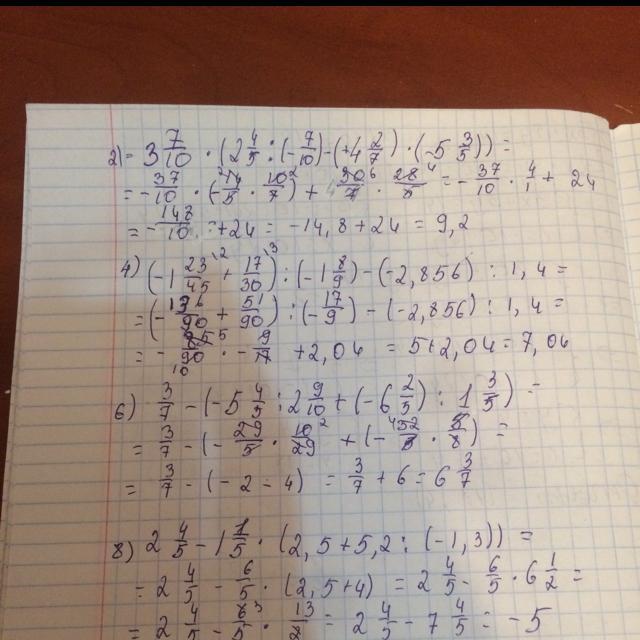 2) = 3 7/10 · (2 4/5 : (-7/10) - (+4 2/7) · (-5 3/5)) =
= -37/10 · (-14/5 · 10/7) + 30/7 · 28/5 = -37/10 · 4/1 + 24
= -148/10 = +24 = -14,8 + 24 = 9,2
4) (-1 23/45 + 17/30) : (-1 8/9) - (-2,856) : 1,4 =
= (-136/90 + 51/90) : (-17/9) - (-2,856) : 1,4 =
= -85/90 · -9/17 + 2,04 = 5 + 2,04 = 7,04
6) 3/7 - (-5 4/5 : 2 9/10 + (-6 2/5) : 1 3/5) =
= 3/7 - (-29/5 · 10/29 + (-32/5 · 5/8) =
= 3/7 - (-2 - 4) = 3/7 + 6 = 6 3/7
8) 2 4/5 - 1 1/5 · (2,5 + 5,2 : (-1,3)) =
= 2 4/5 - 6/5 · (2,5 + 4) = 2 4/5 - 6/5 · 6 1/2 =
= 2 4/5 - 6/5 · 13/2 = 2 4/5 - 7 4/5 = -5